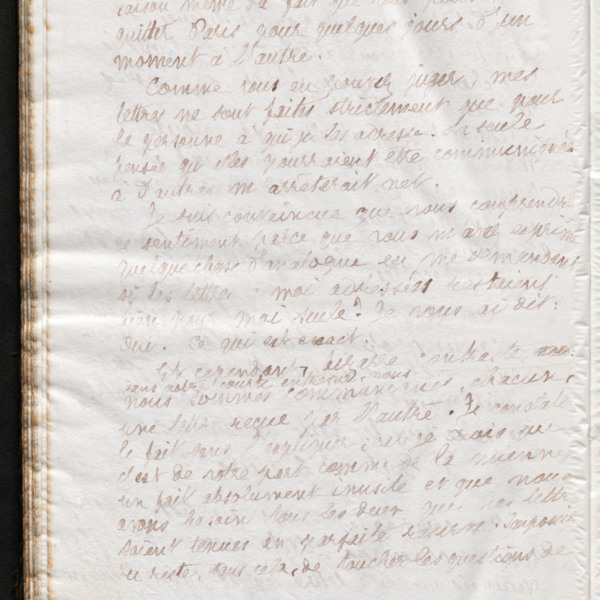 raison même du fait que vous
quitter Paris pour quelques jours d'un
moment à l'autre.
Comme vous en pouvez juger, mes
lettres ne sont faites strictement que pour
la personne à qui je les adresse. La seule
pensée qu'elles pourraient être communiquées
à d'autres m'arrêterait net.
Je suis convaincue que vous comprendrez
ce sentiment parce que vous m'avez exprimé
quelque chose d'analogue en me demandant
si les lettres à moi adressées restaient
bien pour moi seule? Je vous ai dit:
Oui. Ce qui est exact.
Et cependant, bizarre contraste,
dans notre courte entrevue, nous
nous sommes communiqués, chacun,
une lettre reçue par l'autre. Je constate
le fait sans l'expliquer, car je sais que
c'est de votre part comme de la mienne
un fait absolument inusité et que nous
avons besoin tous les deux que nos lettres
soient tenues en parfaite réserve. Impossible
du reste, sans cela, de toucher les questions de